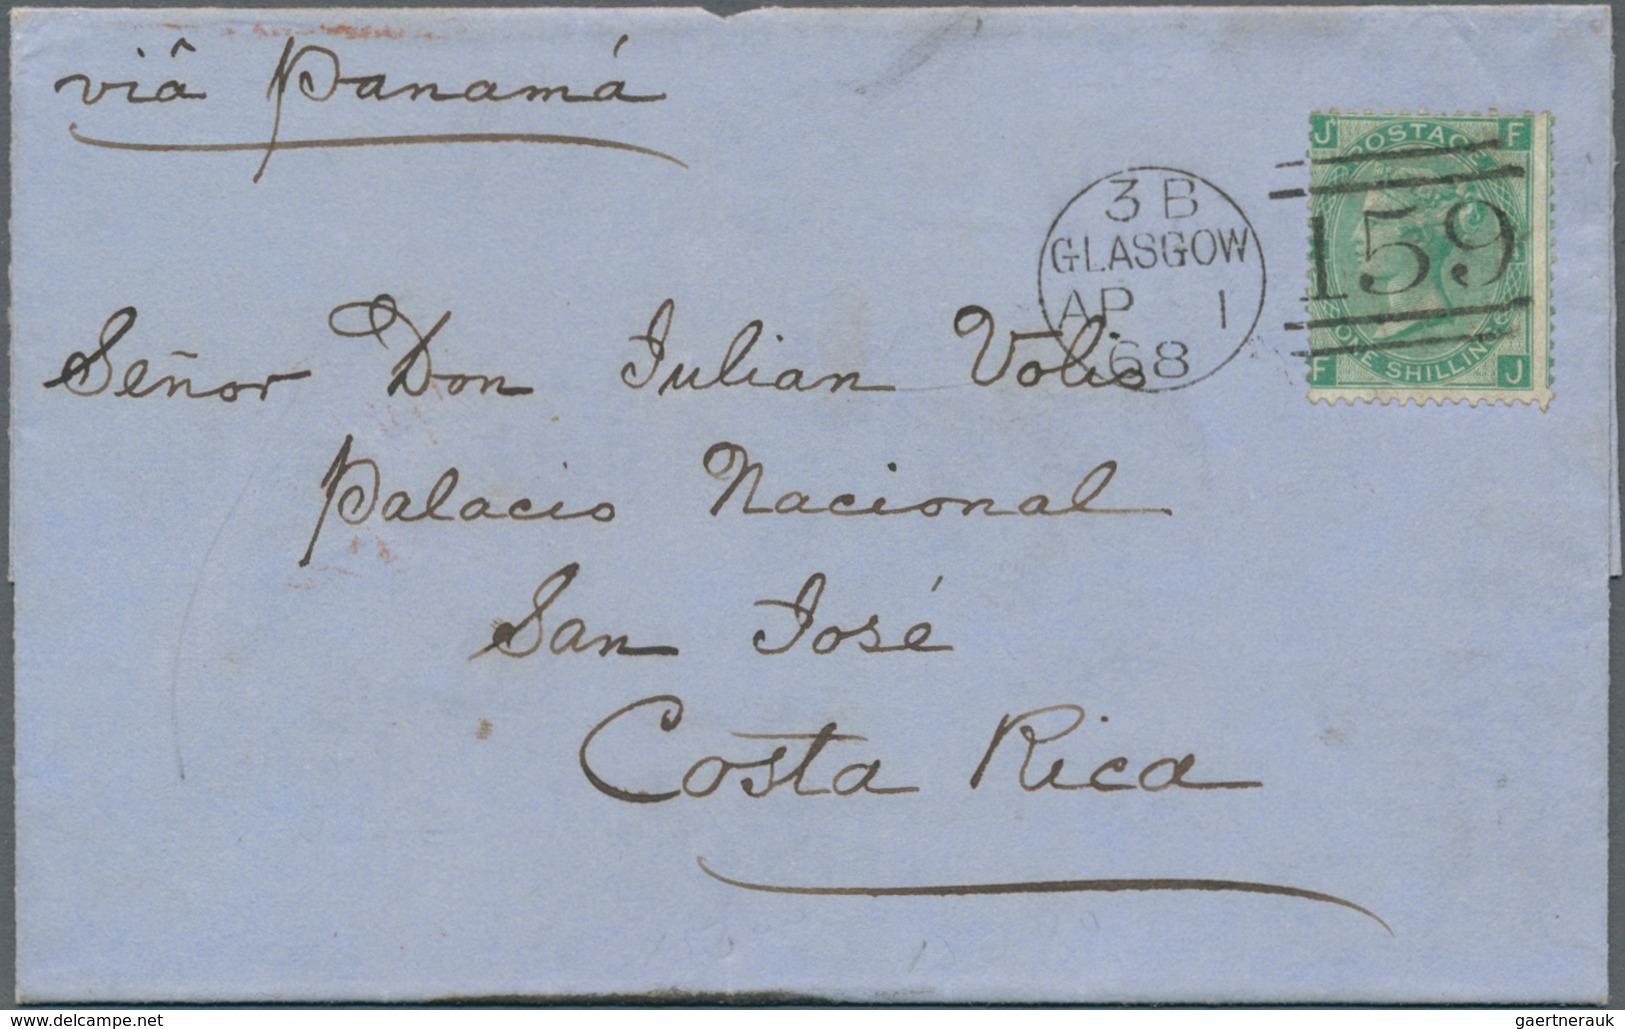 viâ Panamá
3 B
GLASGOW
AP 1
68
J POSTAGE F
159
ONE SHILLING
F J
Señor Don Julian Volio
Palacio Nacional
San José
Costa Rica
www.delcampe.net
gaertnerauk